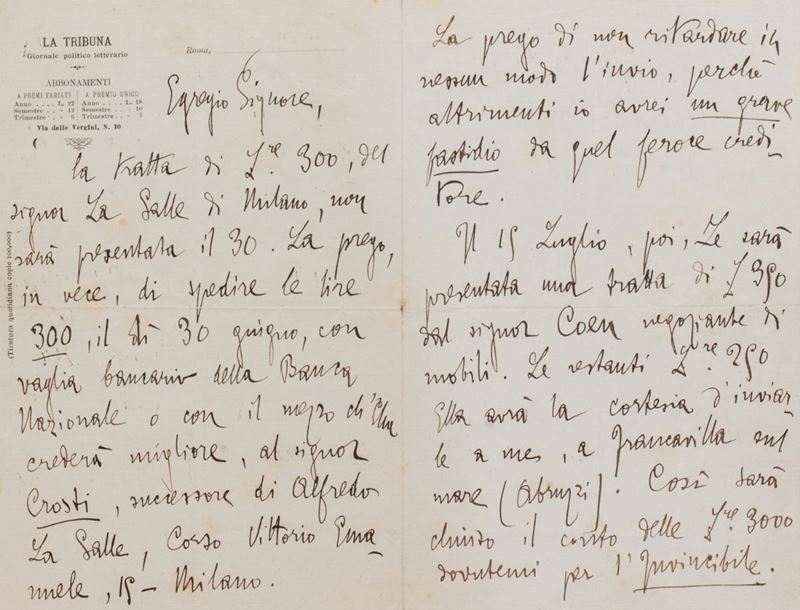 LA TRIBUNA
Giornale politico letterario
ABBONAMENTI
A PREMI VARIATI
Anno .... L. 22
Semestre ... » 12
Trimestre .. » 6
A PREMIO UNICO
Anno .... L. 18
Semestre ... » 10
Trimestre .. » 5
Via delle Vergini, N. 10
(Tiratura quotidiana copie 100,000)
Roma,
Egregio Signore,
la tratta di L.re 300, del
signor La Salle di Milano, non
sarà presentata il 30. La prego,
in vece, di spedire le lire
300, il dì 30 giugno, con
vaglia bancario della Banca
Nazionale o con il mezzo ch'Ella
crederà migliore, al signor
Crosti, successore di Alfredo
La Salle, Corso Vittorio Ema-
nuele, 15 - Milano.
La prego di non ritardare in
nessun modo l'invio, perchè
altrimenti io avrei un grave
fastidio da quel feroce credi-
tore.
Il 15 Luglio, poi, Le sarà
presentata una tratta di L 350
dal signor Coen negoziante di
mobili. Le restanti L.re 250
Ella avrà la cortesia d'inviar-
le a me, a Francavilla sul
mare (Abruzzi). Così sarà
chiuso il conto delle L.re 3000
dovutemi per l'Invincibile.